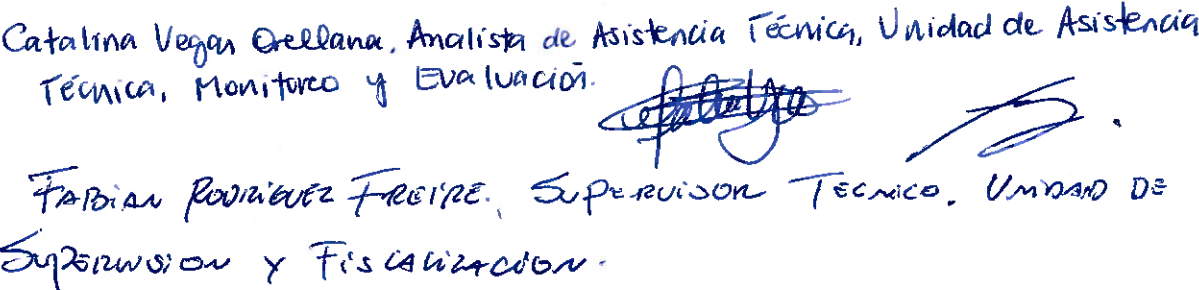 Catalina Vegas Orellana. Analista de Asistencia Técnica, Unidad de Asistencia
Técnica, Monitoreo y Evaluación.
FABIAN RODRIGUEZ FREIRE. SUPERVISOR TECNICO. UNIDAD DE
SUPERVISION Y FISCALIZACION.